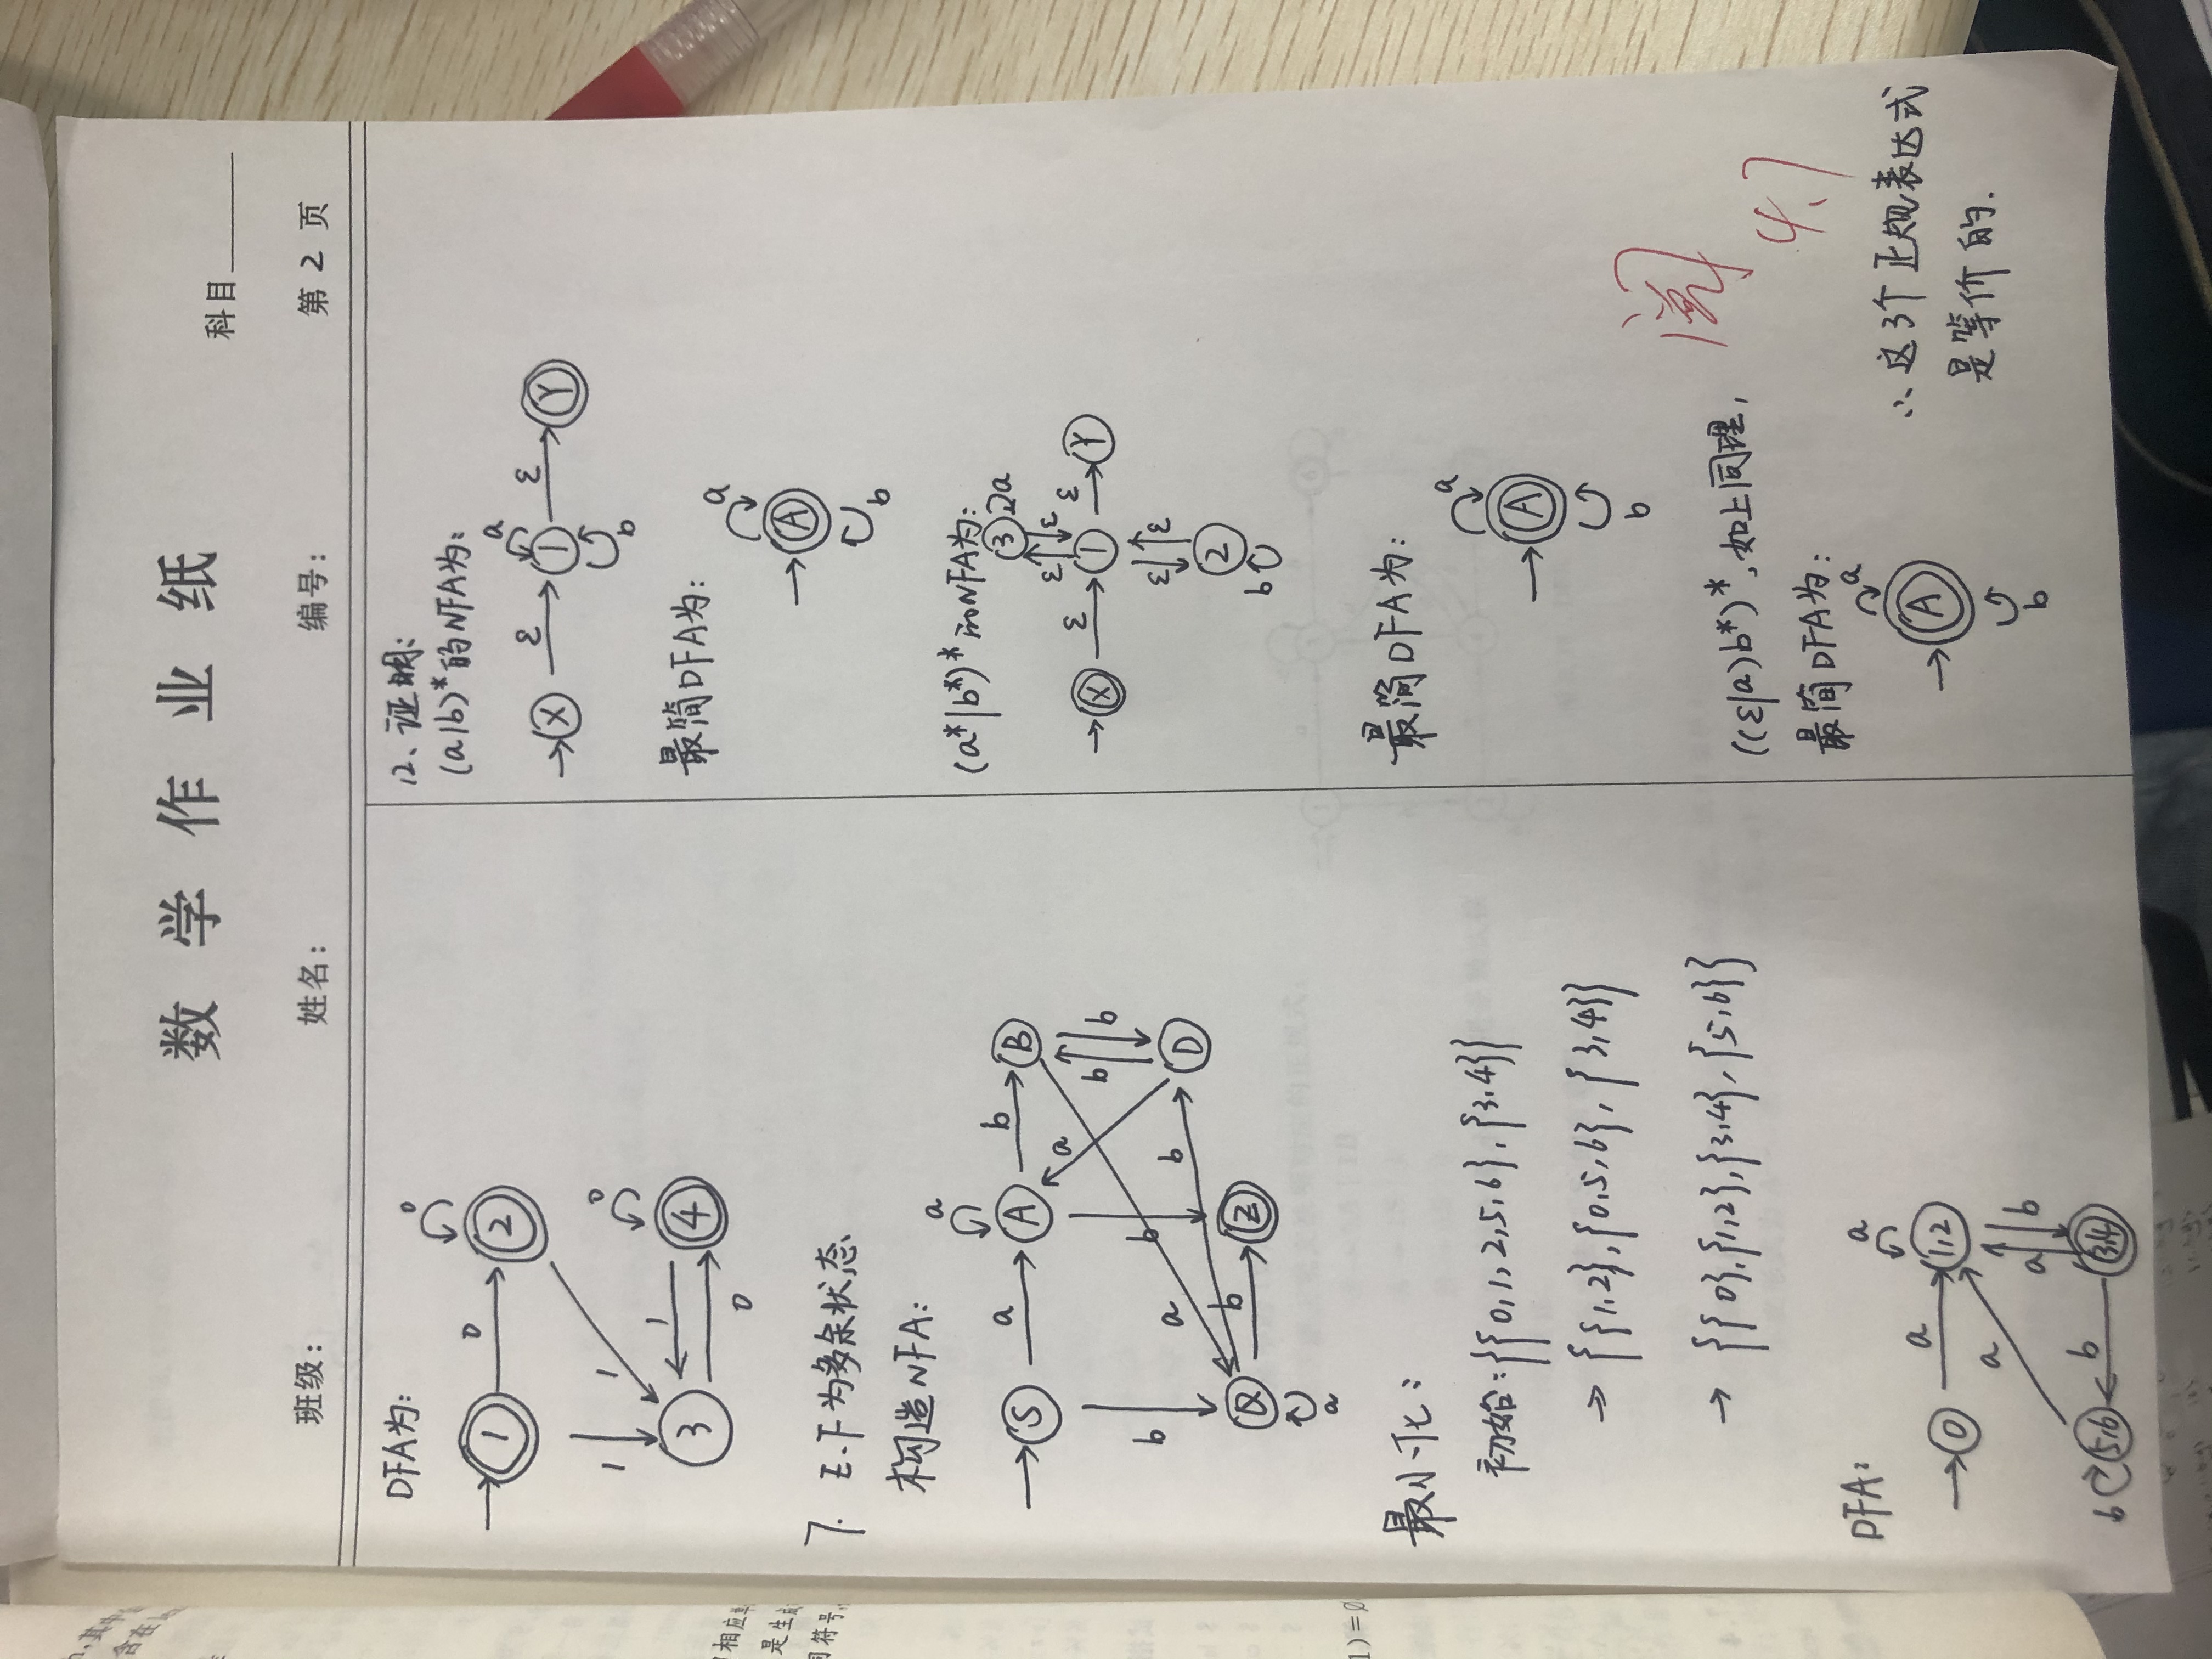 数学作业纸
科目
班级：
姓名：
编号：
第 2 页
DFA为:
0
1
0
2
1
1
0
3
1
4
0
7. E.F为多余状态
构造NFA:
a
S
a
A
b
B
a
b
b
b
a
b
b
D
Q
b
Z
a
最小化:
初始:{{0,1,2,5,6},{3,4}}
→ {{1,2},{0,5,6},{3,4}}
→ {{0},{1,2},{3,4},{5,6}}
DFA:
a
0
a
1,2
a
a
b
b
5,6
b
3,4
12、证明:
(a|b)*的NFA为:
a
X
ε
1
ε
Y
b
最简DFA为:
a
A
b
(a*|b*)*的NFA为:
3
a
ε
ε
X
ε
1
ε
Y
ε
ε
2
b
最简DFA为:
a
A
b
((ε|a)b*)*,如上同理,
最简DFA为:
a
A
b
∴这3个正规表达式
是等价的.
阅
4.7
相应
是生成
符号,
1)=∅